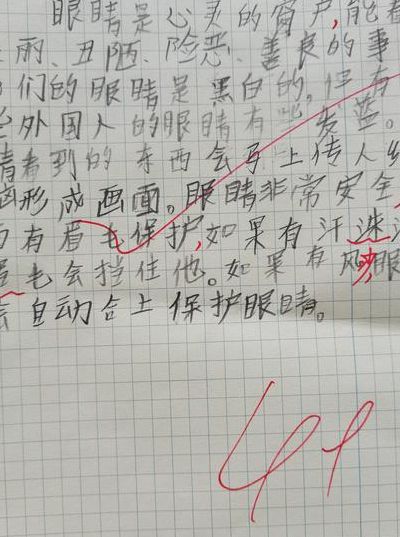 眼睛是心灵的窗户,能看
丽、丑陋、险恶、善良的事
们的眼睛是黑白的,但有
些外国人的眼睛有些发蓝。
睛看到的东西会马上传入
形成画面。眼睛非常安全,
有眉毛保护,如果有汗
眉毛会挡住他。如果有风沙眼
自动合上保护眼睛。